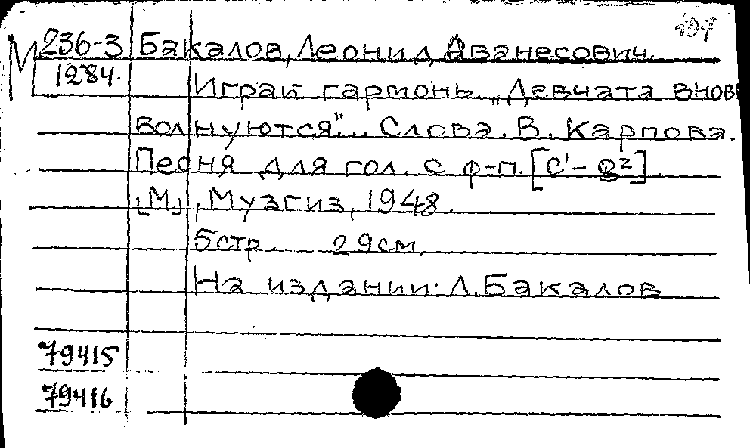 М 236-3 Бакалов, Леонид Аванесович.
1284. Играй гармонь. „Девчата вновь
волнуются"... Слова В. Карпова.
Песня для гол. с ф-п. [c¹-g²]
[М], Музгиз, 1948.
5 стр. 29 см.
На издании: Л. Бакалов
79415
79416